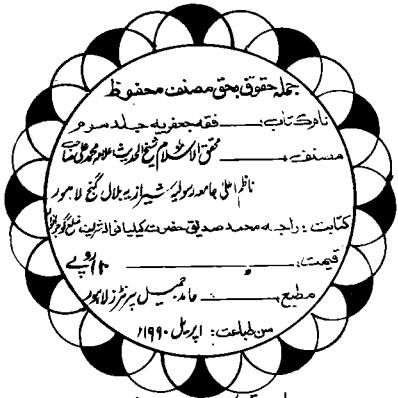 جملہ حقوق بحق مصنف محفوظ
نام کتاب: ـــــ فقہ جعفریہ جلد سوم
مصنف ـــــ محقق الاسلام شیخ الحدیث علامہ محمد علی صاحب
ناظم اعلیٰ جامعہ رسولیہ شیرازیہ بلال گنج لاہور
کتابت: راجہ محمد صدیق حضرت کیلیانوالہ شریف ضلع گوجرانوالہ
قیمت: ـــــ روپے
مطبع ـــــ حامد جمیل پرنٹرز لاہور
سن طباعت: اپریل ۱۹۹۰ء